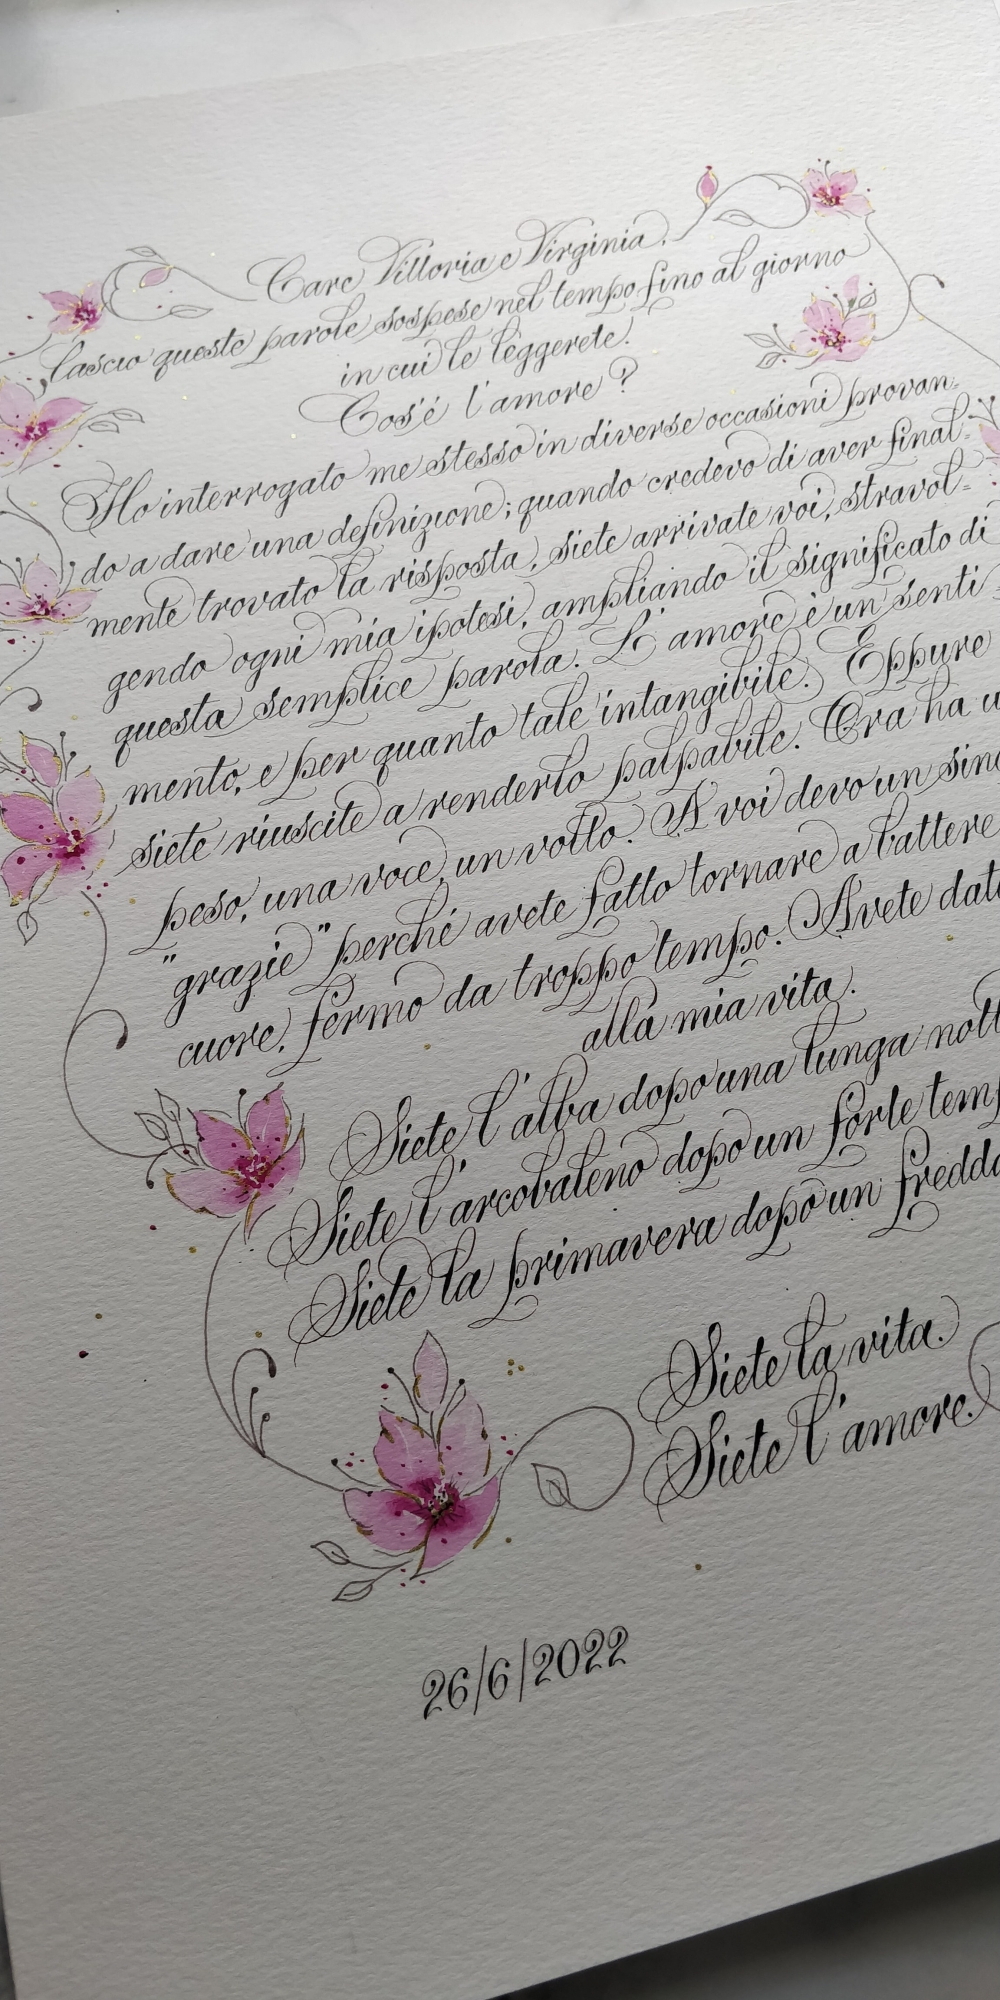 Care Vittoria e Virginia,
lascio queste parole sospese nel tempo fino al giorno
in cui le leggerete.
Cos'è l'amore?
Ho interrogato me stesso in diverse occasioni provan-
do a dare una definizione; quando credevo di aver final-
mente trovato la risposta, siete arrivate voi, stravol-
gendo ogni mia ipotesi, ampliando il significato di
questa semplice parola. L'amore è un senti-
mento, e per quanto tale intangibile. Eppure
siete riuscite a renderlo palpabile. Ora ha u
peso, una voce, un volto. A voi devo un sinc
"grazie" perché avete fatto tornare a battere
cuore, fermo da troppo tempo. Avete dato
alla mia vita.
Siete l'alba dopo una lunga nott
Siete l'arcobaleno dopo un forte temp
Siete la primavera dopo un freddo
Siete la vita.
Siete l'amore.
26/6/2022